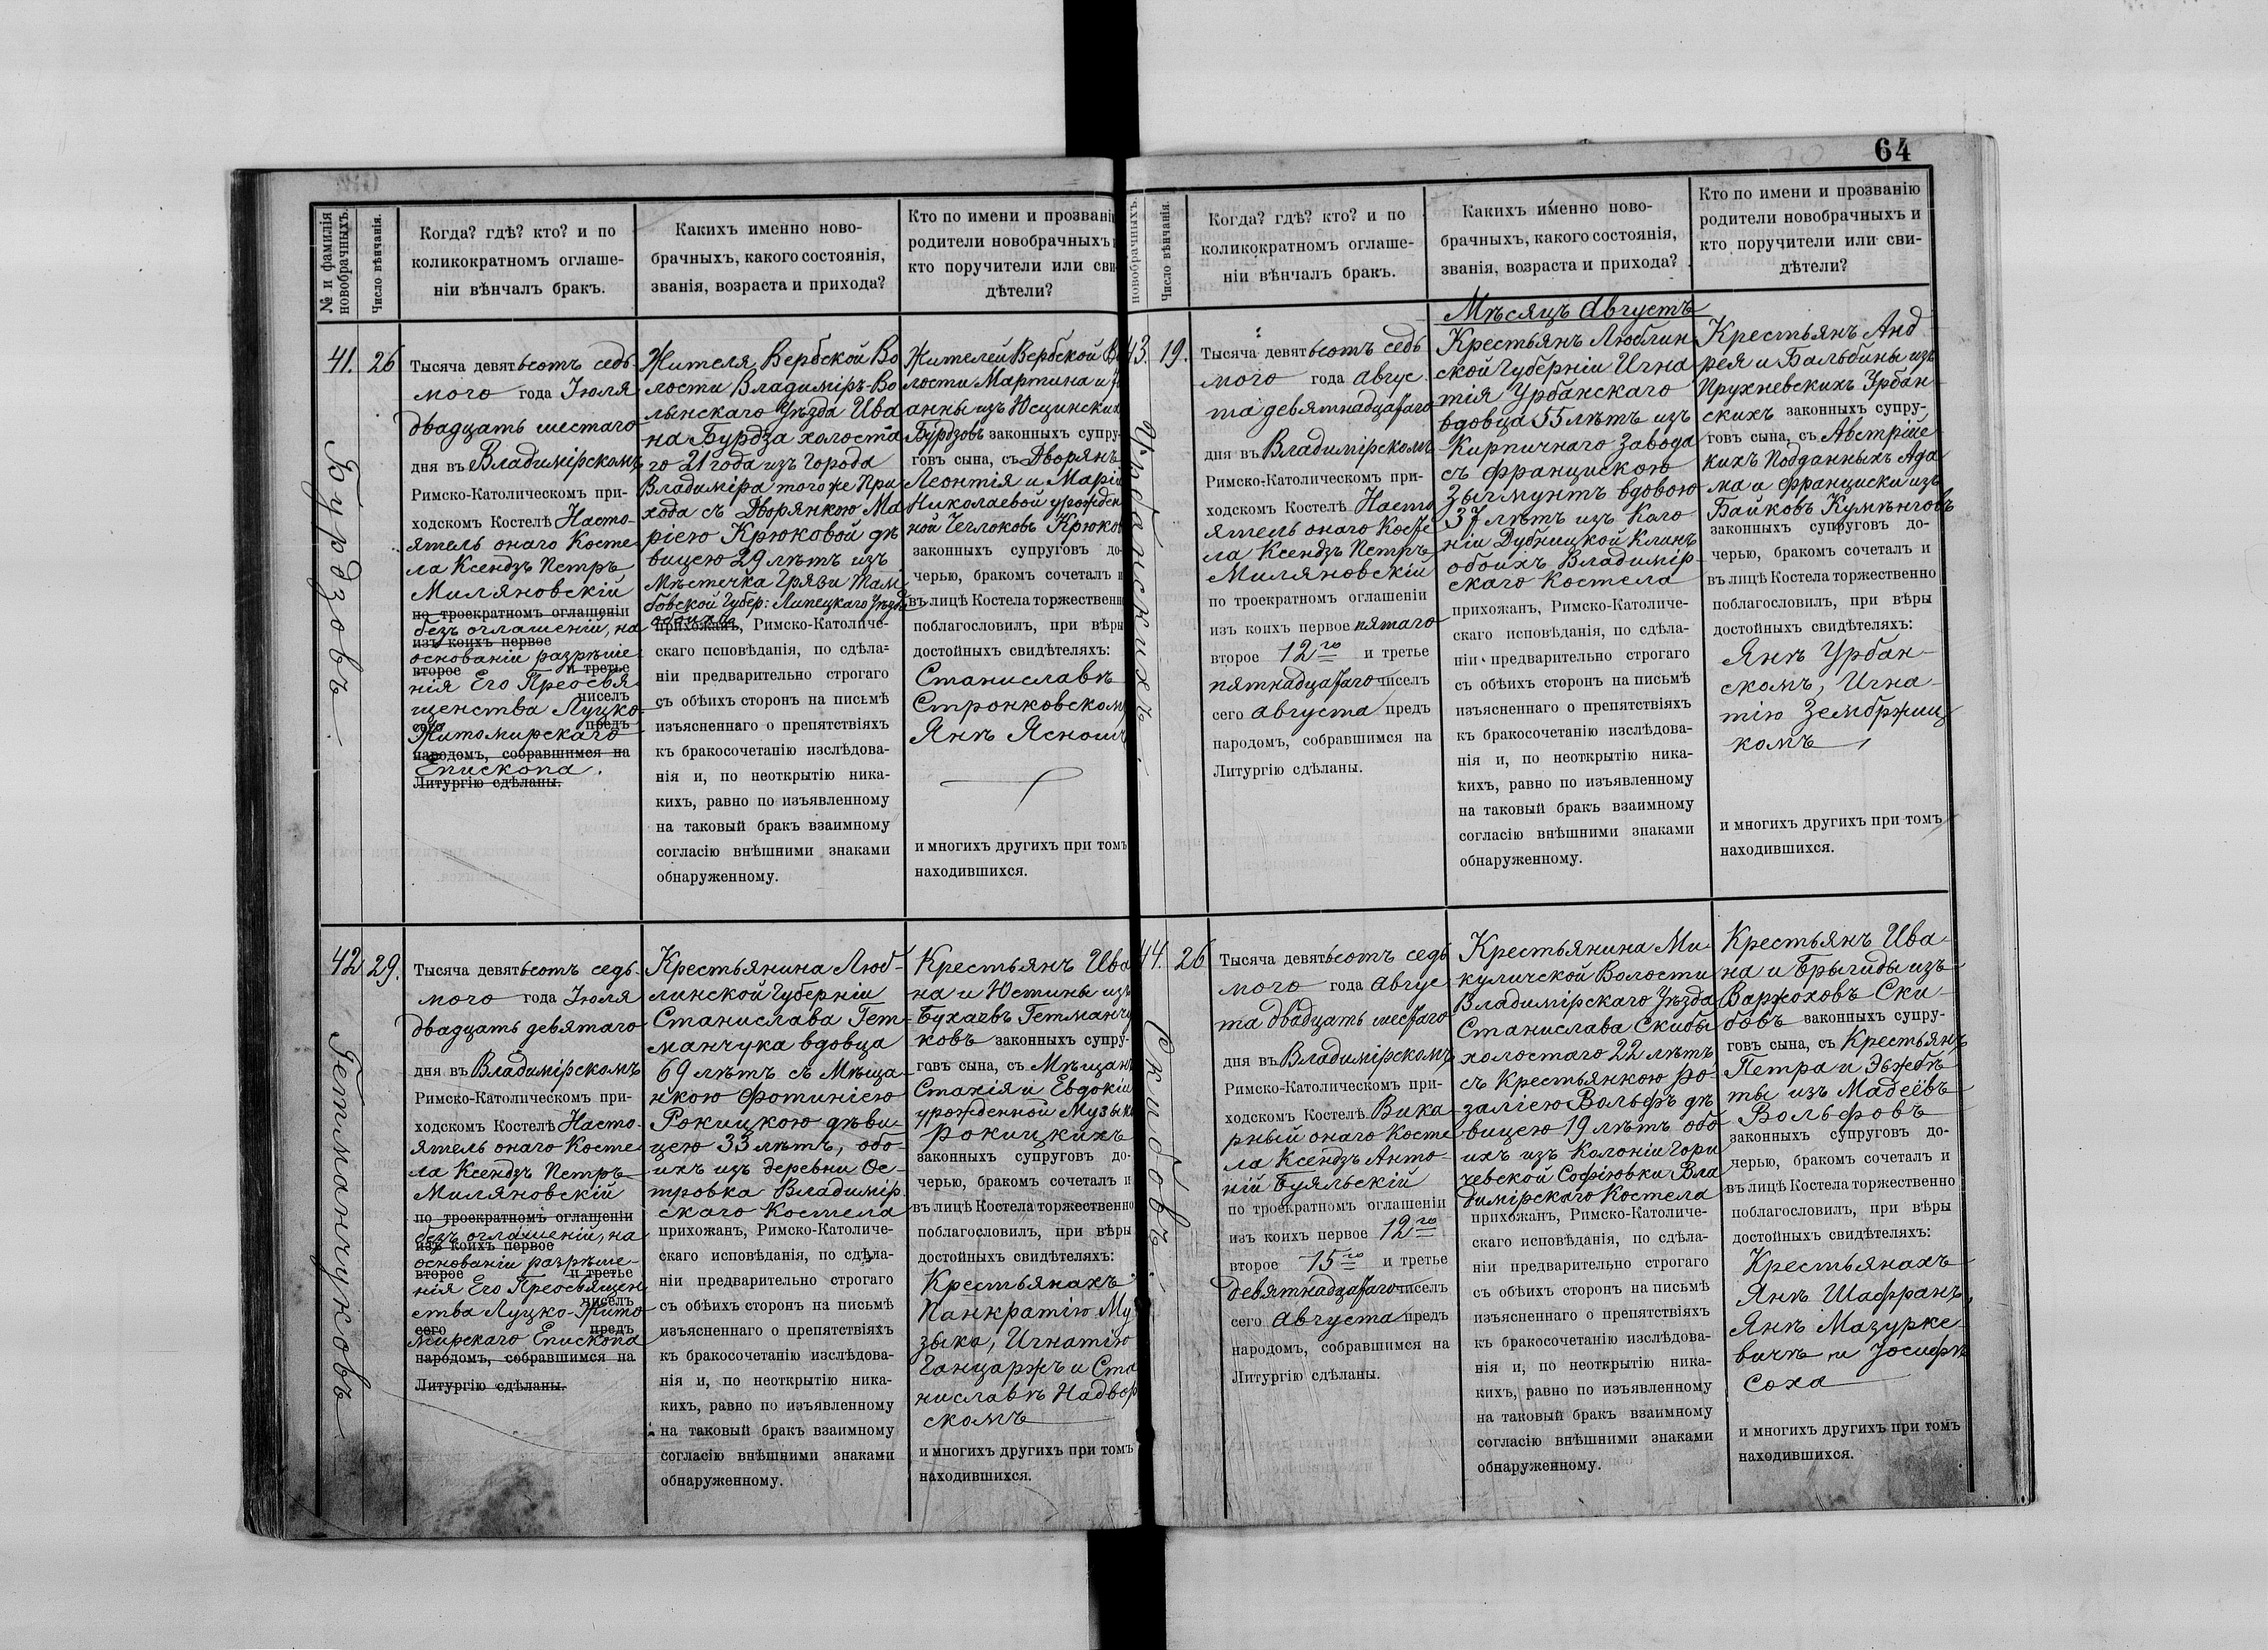 № и фамилія
новобрачныхъ.
Число вѣнчанія.
Когда? гдѣ? кто? и по
коликократномъ оглаше-
ніи вѣнчалъ бракъ.
Какихъ именно ново-
брачныхъ, какого состоянія,
званія, возраста и прихода?
Кто по имени и прозванію
родители новобрачныхъ
кто поручители или сви-
дѣтели?
41.
26
Бурдзовъ.
Тысяча девятьсотъ седь
мого года Іюля
двадцать шестаго
дня въ Владимірскомъ
Римско-Католическомъ при-
ходскомъ Костелѣ Насто-
ятель онаго Косте
ла Ксендзъ Петръ
Миляновскій
по троекратномъ оглашеніи
безъ оглашеній, на
изъ коихъ первое
основаніи разрѣше
второе и третье
нія Его Преосвя
чиселъ
щенства Луцко-
сего предъ
Житомирскаго
народомъ, собравшимся на
Епископа.
Литургію сдѣланы.
Жителя Вербской Во
лости Владиміръ-Во
лынскаго Уѣзда Ива
на Бурдза холоста
го 21 года из города
Владиміра того же При
хода съ Дворянкою Ма
ріею Крюковой дѣ
вицею 29 лѣтъ изъ
Мѣстечка Грязи Там
бовской Губер: Липецкаго Уѣзда
обоихъ
прихожанъ, Римско-Католиче-
скаго исповѣданія, по сдѣла-
ніи предварительно строгаго
съ обѣихъ сторонъ на письмѣ
изъясненнаго о препятствіяхъ
къ бракосочетанію изслѣдова-
нія и, по неоткрытію ника-
кихъ, равно по изъявленному
на таковый бракъ взаимному
согласію внѣшними знаками
обнаруженному.
Жителей Вербской Во
лости Мартина и
анны изъ Юсцинскихъ
Бурдзовъ законныхъ супру-
говъ сына, съ Дворянъ
Леонтія и Маріи
Николаевой урожден
ной Чеглоковъ Крюков
законныхъ супруговъ до-
черью, бракомъ сочеталъ и
въ лицѣ Костела торжественно
поблагословилъ, при вѣры
достойныхъ свидѣтеляхъ:
Станиславѣ
Стронковском
Янѣ
и многихъ другихъ при томъ
находившихся.
42
29.
Гетманчуковъ
Тысяча девятьсотъ седь-
мого года Іюля
двадцать девятаго
дня въ Владимірскомъ
Римско-Католическомъ при-
ходскомъ Костелѣ Насто-
ятель онаго Косте
ла Ксендзъ Петръ
Миляновскій
по троекратномъ оглашеніи
безъ оглашеній, на
изъ коихъ первое
основаніи разрѣше-
второе и третье
нія Его Преосвящен
чиселъ
ства Луцко-Жито
сего предъ
мирскаго Епископа
народомъ, собравшимся на
Литургію сдѣланы.
Крестьянина Люб-
линской Губерніи
Станислава Гет-
манчука вдовца
69 лѣтъ съ Мѣща-
нкою Фотиніею
Рокицкою дѣви-
цею 33 лѣтъ, обо-
ихъ изъ деревни Ос-
тровка Владимір
скаго Костела
прихожанъ, Римско-Католиче-
скаго исповѣданія, по сдѣла-
ніи предварительно строгаго
съ обѣихъ сторонъ на письмѣ
изъясненнаго о препятствіяхъ
къ бракосочетанію изслѣдова-
нія и, по неоткрытію ника-
кихъ, равно по изъявленному
на таковый бракъ взаимному
согласію внѣшними знаками
обнаруженному.
Крестьянъ Ива
на и Юстины изъ
Бухаевъ Гетманчу
ковъ законныхъ супру-
говъ сына, съ Мѣщанъ
Стахія и Евдокіи
урожденной Музыки
Рокицкихъ
законныхъ супруговъ до-
черью, бракомъ сочеталъ и
въ лицѣ Костела торжественно
поблагословилъ, при вѣры
достойныхъ свидѣтеляхъ:
Крестьянахъ
Панкратію Му
зыка, Игнатію
Ганцаржъ и Ста
ниславѣ Надвор
скомъ
и многихъ другихъ при томъ
находившихся.
64
новобрачныхъ.
Число вѣнчанія.
Когда? гдѣ? кто? и по
коликократномъ оглаше-
ніи вѣнчалъ бракъ.
Какихъ именно ново-
брачныхъ, какого состоянія,
званія, возраста и прихода?
Кто по имени и прозванію
родители новобрачныхъ и
кто поручители или сви-
дѣтели?
Мѣсяцъ Августъ
43.
19.
Урбанскихъ.
Тысяча девятьсотъ седь
мого года Авгус
та девятнадцатаго
дня въ Владимірскомъ
Римско-Католическомъ при-
ходскомъ Костелѣ Насто
ятель онаго Косте
ла Ксендзъ Петръ
Миляновскій
по троекратномъ оглашеніи
изъ коихъ первое пятаго
второе 12го и третье
пятнадцатаго чиселъ
сего Августа предъ
народомъ, собравшимся на
Литургію сдѣланы.
Крестьянъ Люблин
ской Губерніи Игна
тія Урбанскаго
вдовца 55 лѣтъ изъ
Кирпичнаго Завода
съ Францискою
Зыгмунтъ вдовою
37 лѣтъ изъ Коло
ніи Дубницкой Клинъ
обоихъ Владимір-
скаго Костела
прихожанъ, Римско-Католиче-
скаго исповѣданія, по сдѣла-
ніи предварительно строгаго
съ обѣихъ сторонъ на письмѣ
изъясненнаго о препятствіяхъ
къ бракосочетанію изслѣдова-
нія и, по неоткрытію ника-
кихъ, равно по изъявленному
на таковый бракъ взаимному
согласію внѣшними знаками
обнаруженному.
Крестьянъ Анд
рея и Бальбины изъ
Прухневскихъ Урбан
скихъ законныхъ супру-
говъ сына, съ Австрійс-
кихъ Подданныхъ Ада
ма и Франциски изъ
Байковъ
законныхъ супруговъ до-
черью, бракомъ сочеталъ и
въ лицѣ Костела торжественно
поблагословилъ, при вѣры
достойныхъ свидѣтеляхъ:
Янѣ Урбан-
скомъ, Игна-
тію Зембржиц
комъ
и многихъ другихъ при томъ
находившихся.
44.
26
Скибовъ.
Тысяча девятьсотъ седь
мого года Авгус
та двадцать шестаго
дня въ Владимірскомъ
Римско-Католическомъ при-
ходскомъ Костелѣ Вика
рный онаго Косте
ла Ксендзъ Анто-
ній Буяльскій
по троекратномъ оглашеніи
изъ коихъ первое 12го
второе 15го и третье
девятнадцатаго чиселъ
сего Августа предъ
народомъ, собравшимся на
Литургію сдѣланы.
Крестьянина Ми-
куличской Волости
Владимірскаго Уѣзда
Станислава Скибы
холостаго 22 лѣтъ
съ Крестьянкою Ро-
заліею Вольфъ дѣ
вицею 19 лѣтъ обо
ихъ изъ Колоніи Гори
чевской Софіювки Вла
димірскаго Костела
прихожанъ, Римско-Католиче-
скаго исповѣданія, по сдѣла-
ніи предварительно строгаго
съ обѣихъ сторонъ на письмѣ
изъясненнаго о препятствіяхъ
къ бракосочетанію изслѣдова-
нія и, по неоткрытію ника-
кихъ, равно по изъявленному
на таковый бракъ взаимному
согласію внѣшними знаками
обнаруженному.
Крестьянъ Ива-
на и Брыгиды изъ
Варжоховъ Ски-
бовъ законныхъ супру-
говъ сына, съ Крестьянъ
Петра и Эльжбѣ
ты изъ Мадеёвъ
Вольфовъ
законныхъ супруговъ до-
черью, бракомъ сочеталъ и
въ лицѣ Костела торжественно
поблагословилъ, при вѣры
достойныхъ свидѣтеляхъ:
Крестьянахъ
Янѣ Шафранъ,
Янѣ Мазурке-
вичъ и Іосифѣ
Соха
и многихъ другихъ при томъ
находившихся.